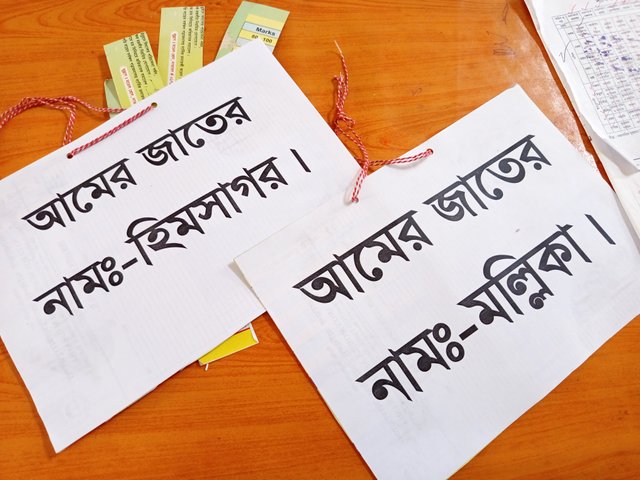 Marks
80 100
আমের জাতের
নামঃ-হিমসাগর।
আমের জাতের
নামঃ-মল্লিকা।